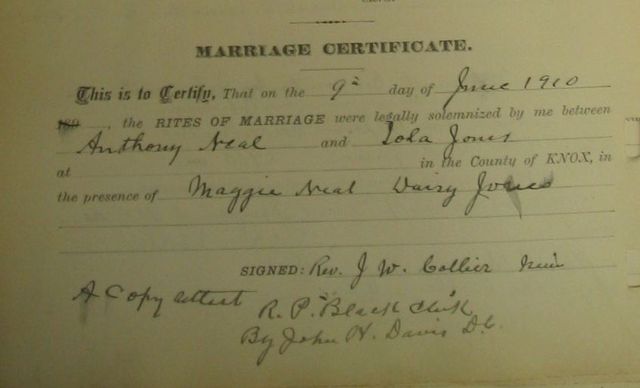 MARRIAGE CERTIFICATE.
This is to Certify, That on the 9" day of June 1910
189 , the RITES OF MARRIAGE were legally solemnized by me between
Anthony Neal and Lola Jones
at in the County of KNOX, in
the presence of Maggie Neal Daisy Jones
SIGNED: Rev. J W. Collier Min
A Copy attest R. P. Black Clk
By John H. Davis D.C.